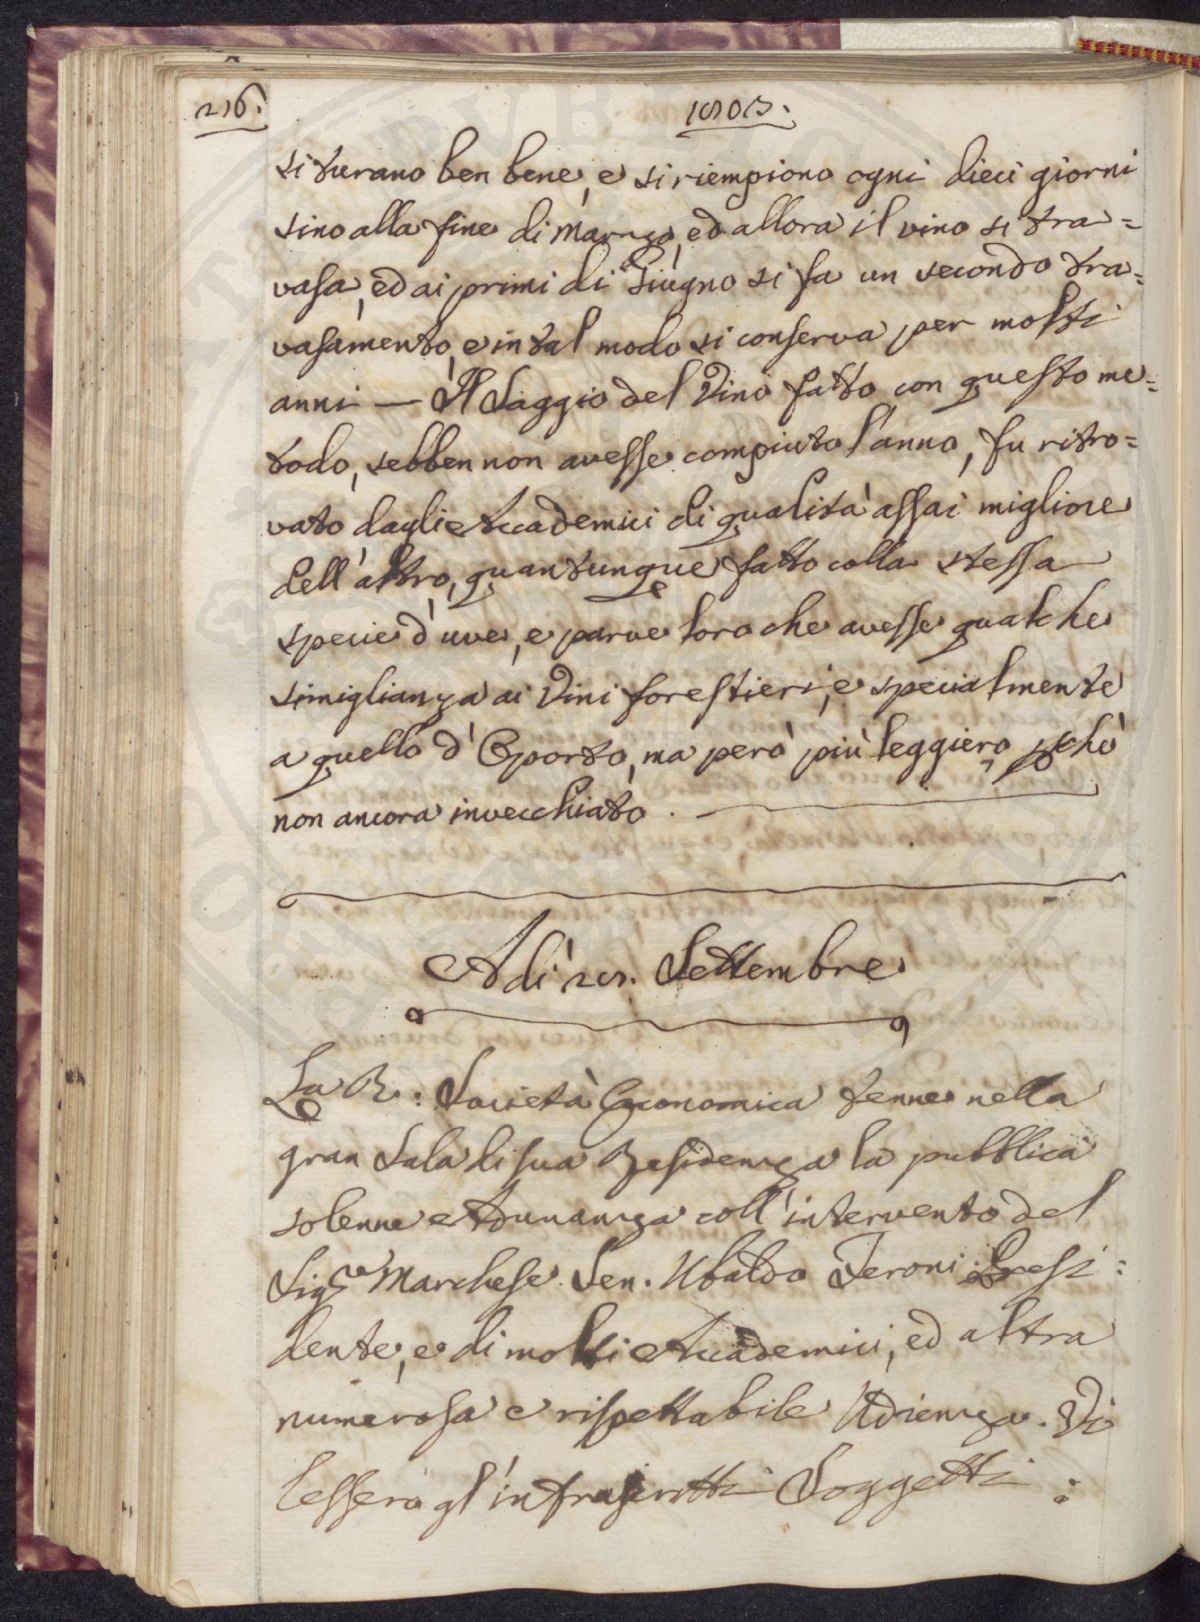 216. 1803.
si turano ben bene, e si riempiono ogni dieci giorni
sino alla fine di Marzo, ed allora il vino si tra=
vasa, ed ai primi di Giugno si fa un secondo tra=
vasamento, e in tal modo si conserva per molti
anni — Il Saggio del Vino fatto con questo me=
todo, sebben non avesse compiuto l'anno, fu ritro=
vato dagli Accademici di qualità assai migliore
dell'altro, quantunque fatto colla stessa
specie d'uve, e parve loro che avesse qualche
simiglianza ai Vini forestieri, e specialmente
a quello d'Oporto, ma però più leggiero pchè
non ancora invecchiato. —
A dì Settembre
La R: Società Economica tenne nella
gran Sala di sua Residenza la pubblica
solenne Adunanza coll'intervento del
Sigr Marchese Sen. Ubaldo Feroni Presi=
dente, e di molti Accademici, ed altra
numerosa e rispettabile Udienza. Vi
lessero gl'infrascritti Soggetti: